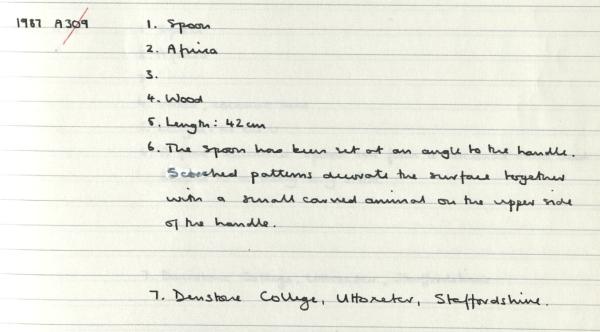 1987 A309 1. Spoon
2. Africa
3.
4. Wood
5. Length: 42cm
6. The spoon has been set at an angle to the handle.
Scorched patterns decorate the surface together
with a small carved animal on the upper side
of the handle.
7. Denstone College, Uttoxeter, Staffordshire.